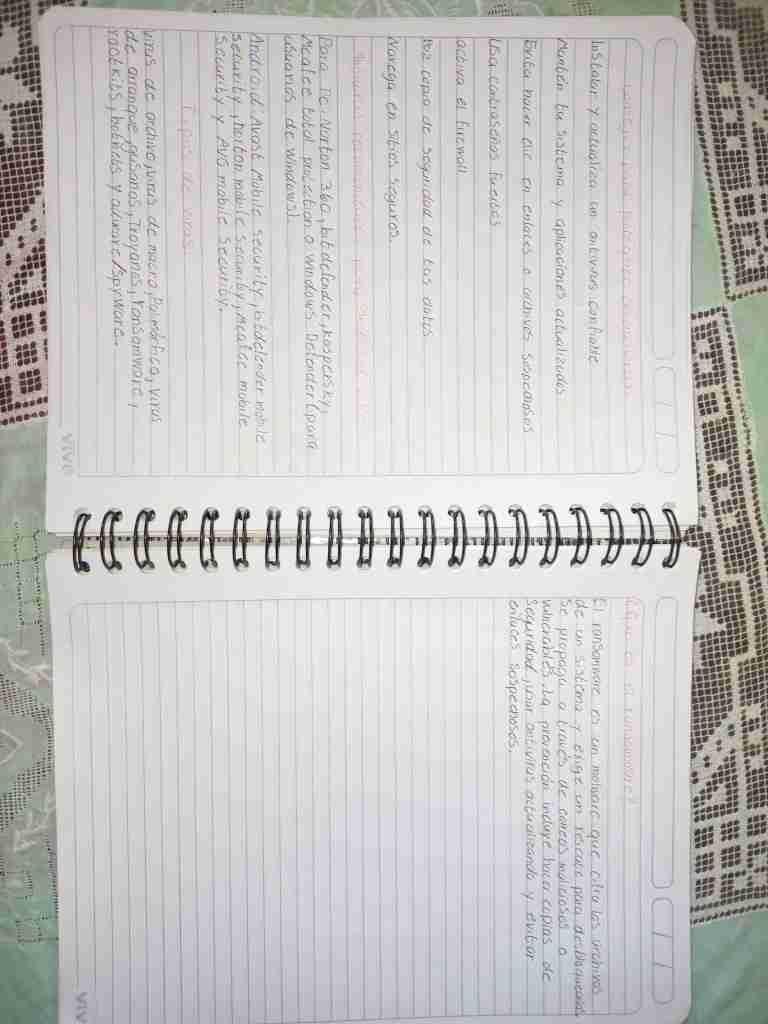 Consejos para proteger
Instalar y actualiza un antivirus confiable
Mantén tu sistema y aplicaciones actualizados
Evita hacer clic en enlaces o archivos sospechosos
Usa contraseñas fuertes
activa el firewall
Haz copia de seguridad de tus datos
Navega en sitios seguros.
Para Pc: Norton 360, bitdefender, kaspersky,
Mcafee total protection o Windows Defender (para
usuarios de Windows)
Android: Avast Mobile security, bitdefender mobile
security, norton mobile security, mcafee mobile
security y AVG mobile security.
Tipos de virus
virus de archivo, virus de macro, Polimórfico, virus
de arranque, gusanos, Troyanos, ransomware,
rootkits, botnets y adware/spyware.
vive
¿Que es el ransomware?
El ransomware es un malware que cifra los archivos
de un sistema y exige un rescate para desbloquearlos
se propaga a través de correos maliciosos o
vulnerables. La prevención incluye hacer copias de
seguridad, usar antivirus actualizando y evitar
enlaces sospechosos.